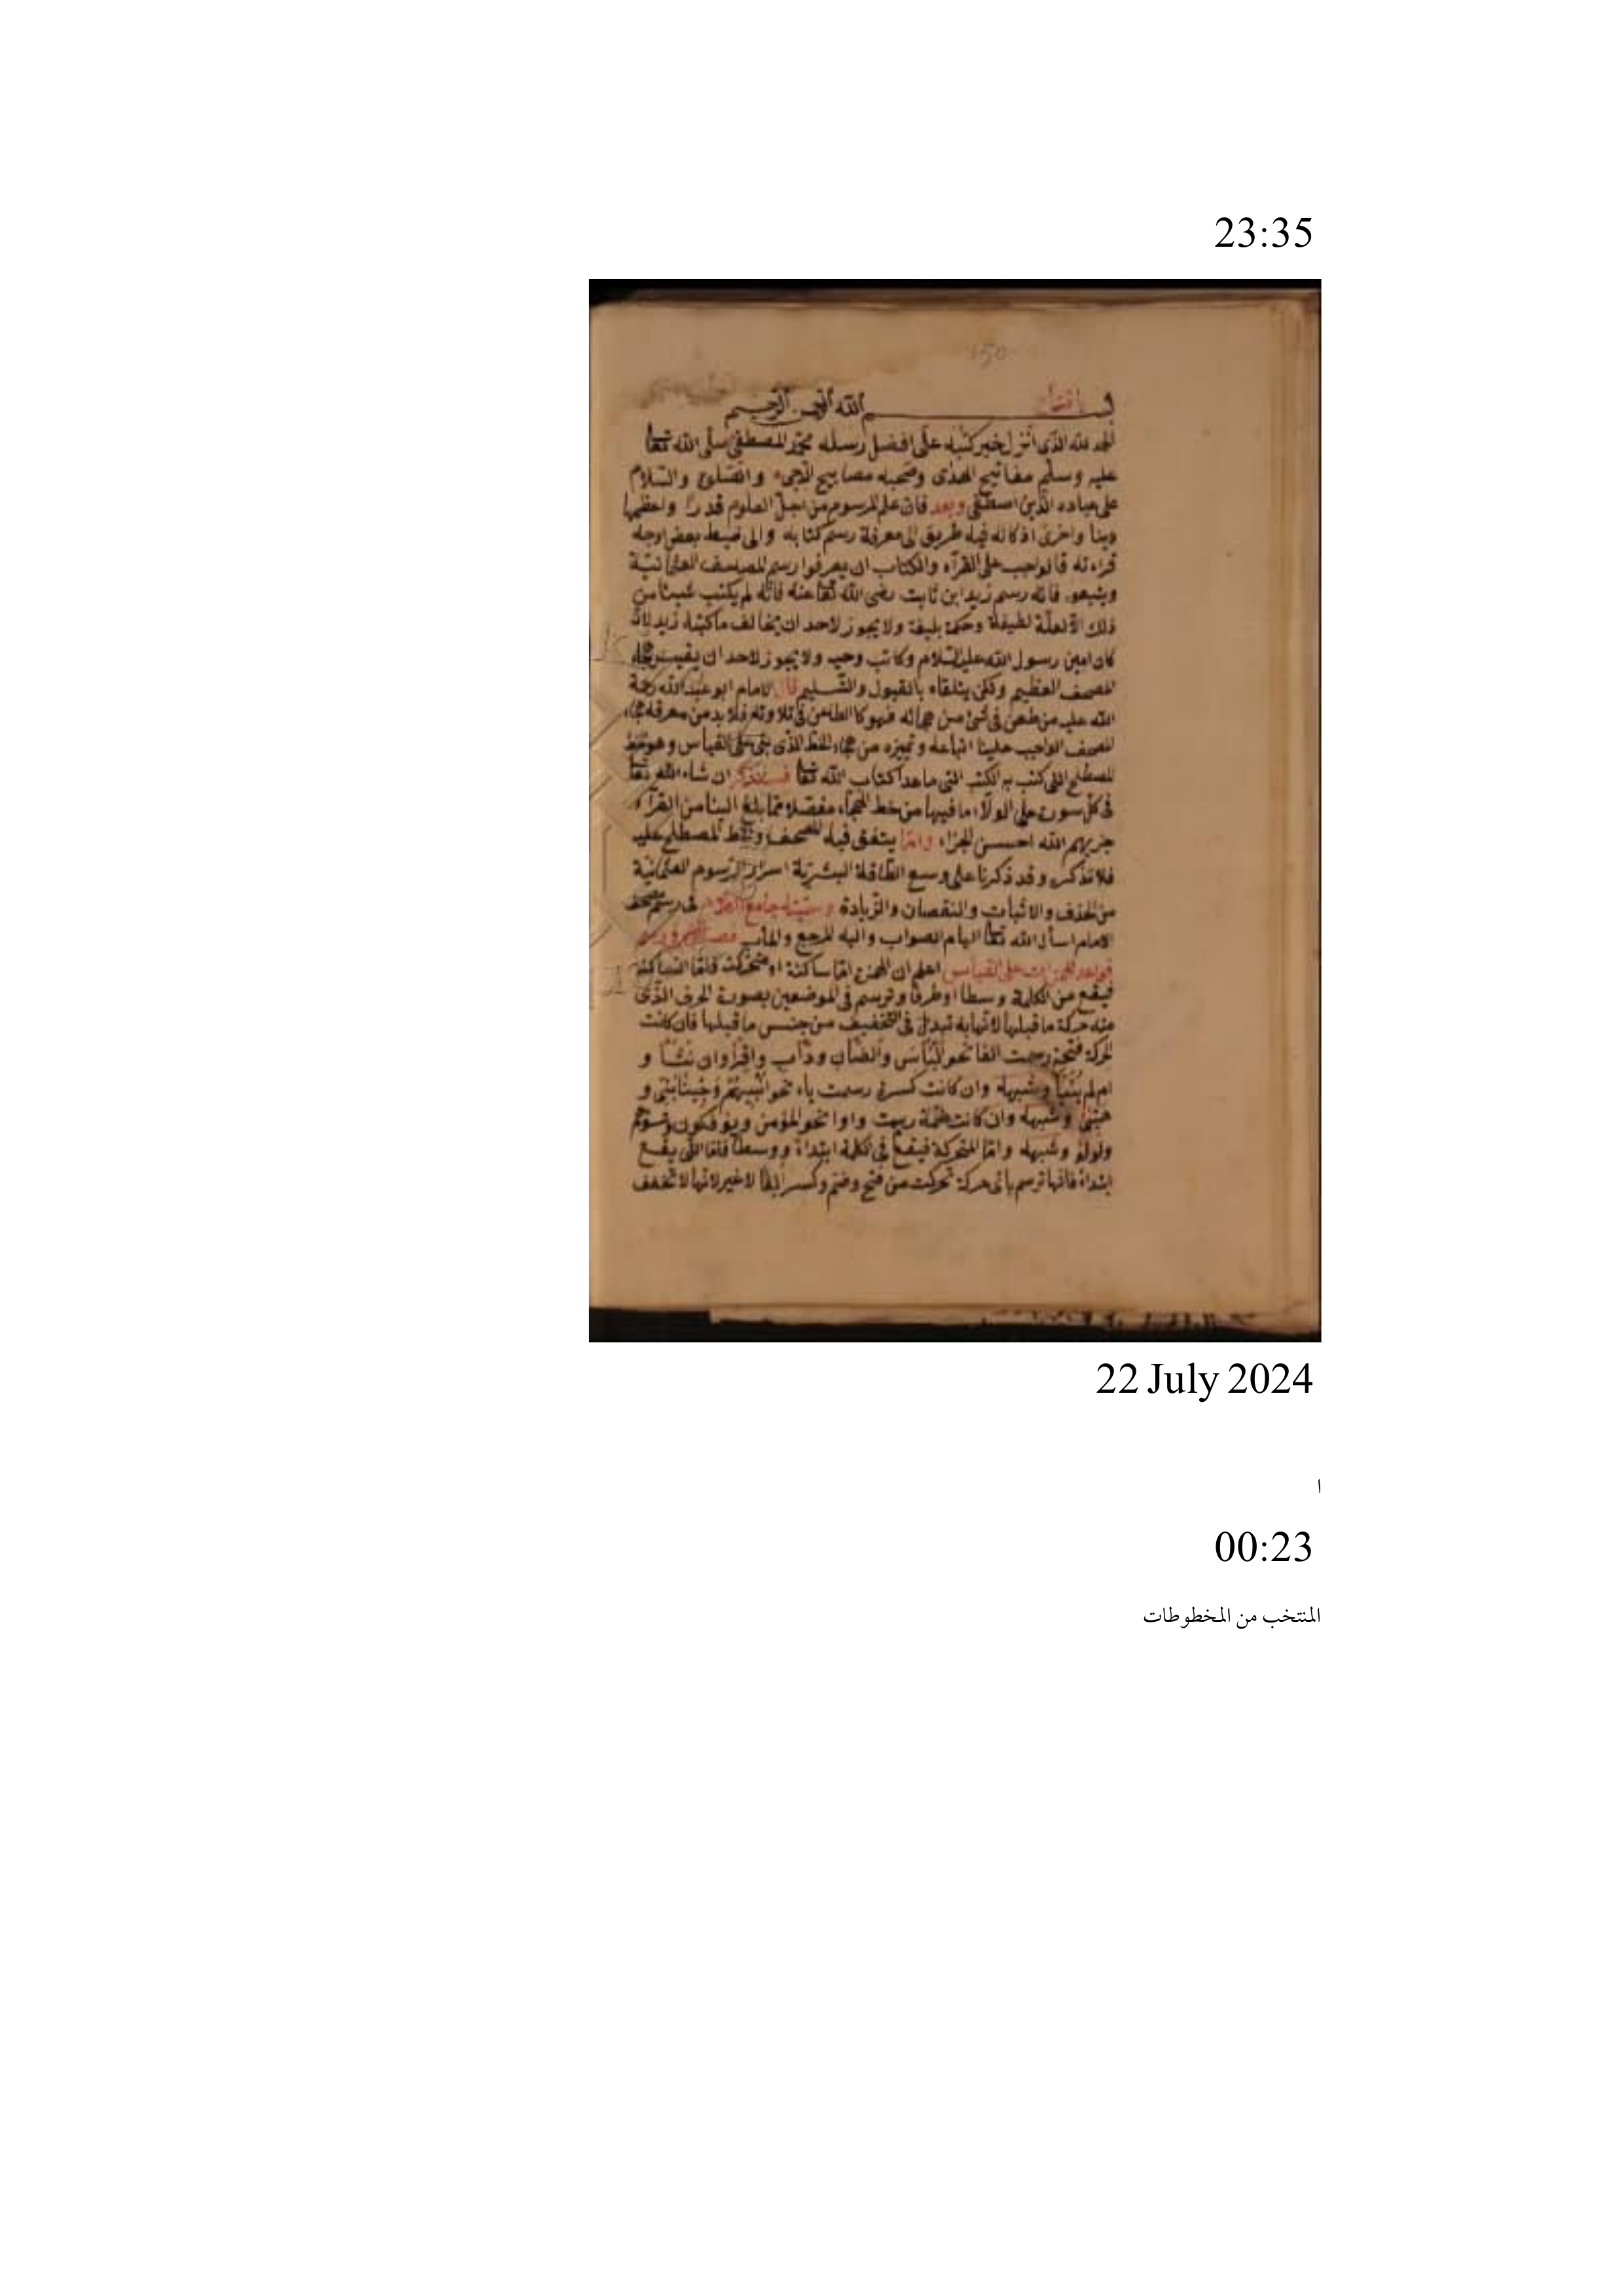 23:35
150
بسم الله الرحمن الرحيم
الحمد لله الذى انزل خير كتبه على افضل رسله محمد المصطفى صلى الله تعا
عليه وسلم مفاتيح الهدى وصحبه مصابيح الدجى والصلوة والسلام
على عباده الذين اصطفى وبعد فان علم المرسوم من اجل العلوم قدرا واعظمها
دينا واخرى اذ كان فيه طريق الى معرفة رسم كتابه والى ضبط بعض اوجه
قراءته فالواجب على القراء والكتاب ان يعرفوا رسم المصحف العثمانية
ويتبعوه فانه رسم زيد ابن ثابت رضى الله تعا عنه فانه لم يكتب شيئا من
ذلك الا لعلة لطيفة وحكمة بليغة ولا يجوز لاحد ان يخالف ما كتبه زيد لانه
كان امين رسول الله عليه السلام وكاتب وحيه ولا يجوز لاحد ان يقيس هجاء
المصحف العظيم ولكن يتلقاه بالقبول والتسليم قال الامام ابو عبد الله رحمة
الله عليه من طعن فى شئ من هجائه فهو كالطاعن فى تلاوته فلا بد من معرفة هجاء
المصحف الواجب علينا اتباعه وتميزه من هجاء الخط الذى بنى على القياس وهو خط
المصطلح التى كتب به الكتب التى ما عدا كتاب الله تعا فسنذكر ان شاء الله تعا
فى كل سورة على الولاء ما فيها من خط الهجاء مفصلا مما بلغ الينا من القراء
جزيهم الله احسن الجزاء واما يتفق فيه المصحف وخط المصطلح عليه
فلا نذكره وقد ذكرنا على وسع الطاقة البشرية اسرار الرسوم العثمانية
من الحذف والاثبات والنقصان والزيادة وسميته جامع الكلام فى رسم مصحف
الامام اسأل الله تعا الهام الصواب واليه المرجع والمأب
قواعد الهمزات على القياس اعلم ان الهمزة اما ساكنة او متحركت فاما الساكنة
فيقع من الكلمة وسطا او طرفا وترسم فى الموضعين بصورة الحرف الذى
منه حركة ما قبلها لانها به تبدل فى التخفيف من جنس ما قبلها فان كانت
الحركة فتحة رسمت الفا نحو البأس والضأن ودأب واقرأ وان نشأ و
ام لم ينبأ وشبهه وان كانت كسرة رسمت ياء نحو انبئهم وجئنا نبئ و
هيئ وشبهه وان كانت ضمة رسمت واوا نحو المؤمن ويؤفكون وتسؤهم
ولؤلؤ وشبهه واما المتحركة فيقع فى الكلمة ابتداء ووسطا فاما التى يقع
ابتداء فانها ترسم باى حركة تحركت من فتح وضم وكسر الفا لا غير لانها لا تخفف
22 July 2024
ا
00:23
المنتخب من المخطوطات